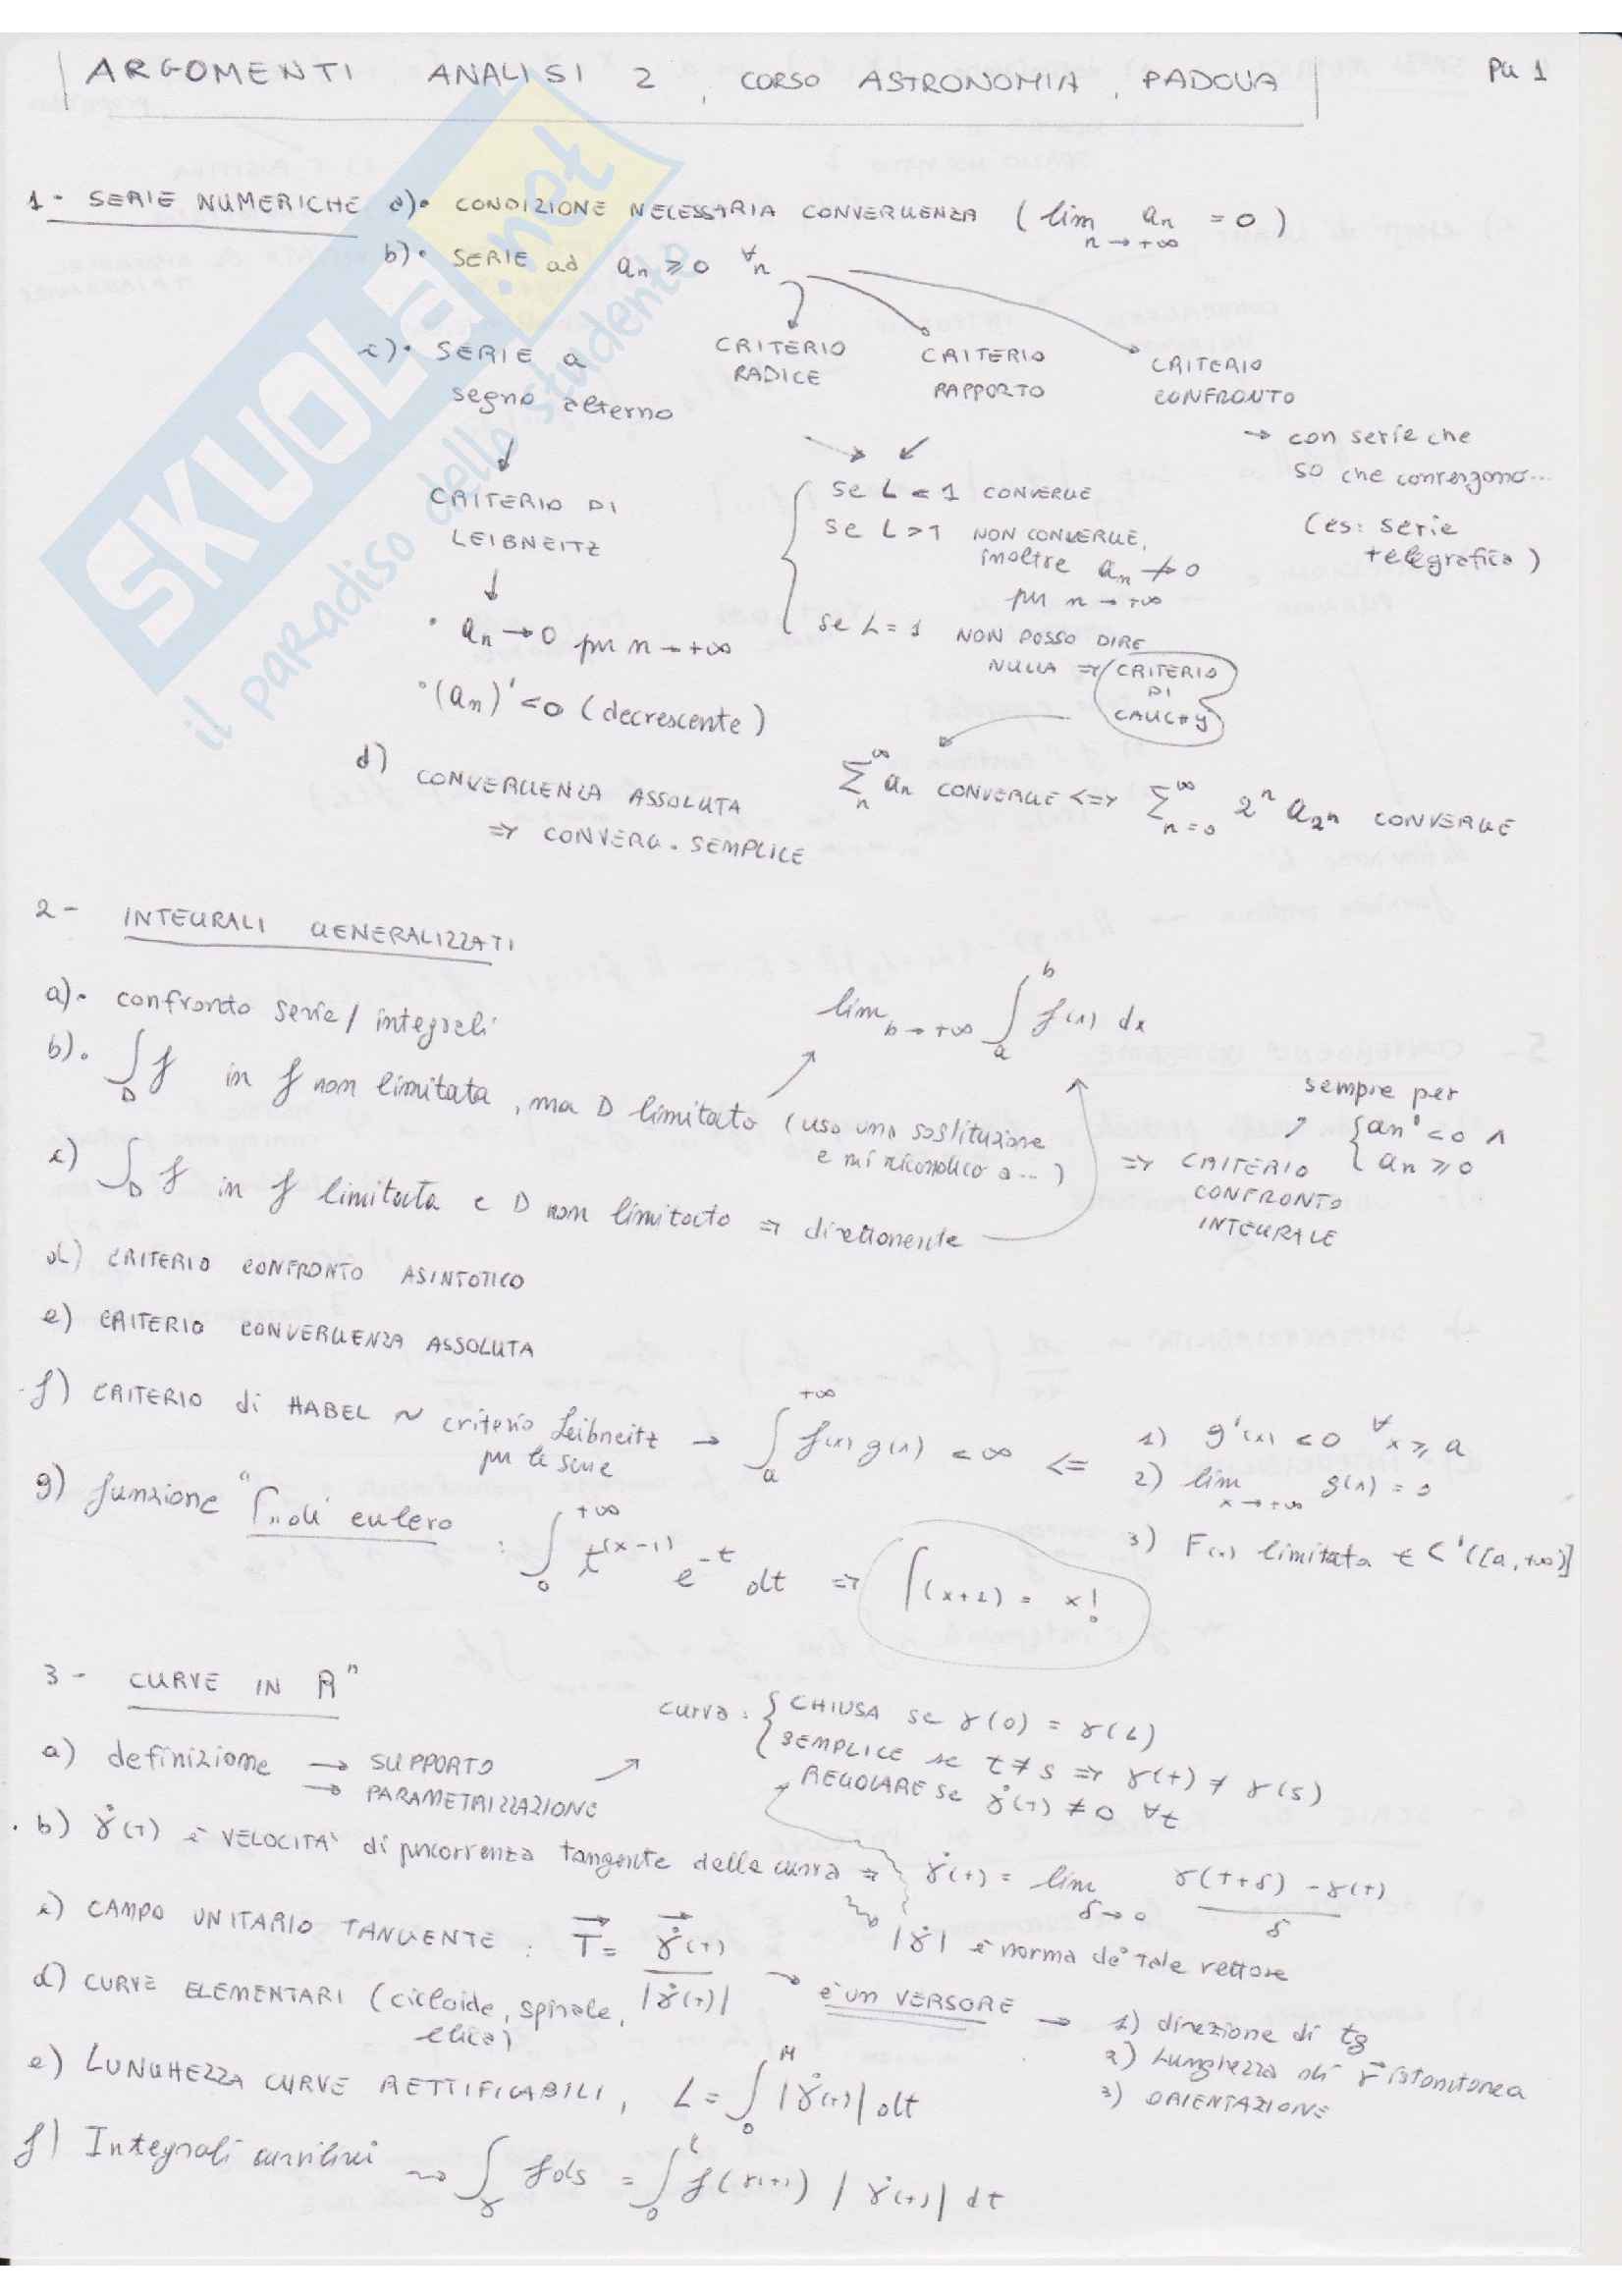 ARGOMENTI ANALISI 2, CORSO ASTRONOMIA, PADOVA
PG 1
1- SERIE NUMERICHE a)• CONDIZIONE NECESSARIA CONVERGENZA ( lim n→+∞ an = 0 )
b)• SERIE ad an ≥ 0 ∀n
c)• SERIE a segno alterno
CRITERIO RADICE
CRITERIO RAPPORTO
CRITERIO CONFRONTO
→ con serie che
so che convergono...
(es: serie
telegrafica)
↓
CRITERIO DI
LEIBNEITZ
↓
• an → 0 per n → +∞
• (an)' < 0 (decrescente)
se L < 1 CONVERGE
se L > 1 NON CONVERGE,
inoltre an ↛ 0
per n → +∞
se L = 1 NON POSSO DIRE
NULLA ⇒ CRITERIO
DI
CAUCHY
d) CONVERGENZA ASSOLUTA
⇒ CONVERG. SEMPLICE
∑n^∞ an CONVERGE <=> ∑n=0^∞ 2^n a2^n CONVERGE
2- INTEGRALI GENERALIZZATI
a)• confronto serie/integrali
b)• ∫D f in f non limitata, ma D limitato (uso una sostituzione
e mi riconduco a...)
lim b→+∞ ∫a^b f(x) dx
c) ∫D f in f limitata e D non limitato ⇒ direttamente
⇒ CRITERIO
CONFRONTO
INTEGRALE
sempre per
{an' < 0 ∧
an ≥ 0
d) CRITERIO CONFRONTO ASINTOTICO
e) CRITERIO CONVERGENZA ASSOLUTA
f) CRITERIO di HABEL ~ criterio Leibneitz
per le serie
→ ∫a^+∞ f(x) g(x) < ∞ <=
1) g'(x) < 0 ∀x ≥ a
2) lim x→+∞ g(x) = 0
3) F(x) limitata ∈ C'([a,+∞)]
g) funzione "Γ" di eulero : ∫0^+∞ t^(x-1) e^-t dt ⇒ Γ(x+1) = x!
3- CURVE IN R^n
a) definizione → SUPPORTO
→ PARAMETRIZZAZIONE
curva: { CHIUSA se γ(0) = γ(L)
SEMPLICE se t ≠ s ⇒ γ(t) ≠ γ(s)
REGOLARE se γ̇(t) ≠ 0 ∀t
• b) γ̇(t) è VELOCITA' di percorrenza tangente della curva ⇒ γ̇(t) = lim δ→0 γ(t+δ) - γ(t) / δ
|γ̇| è norma de tale vettore
c) CAMPO UNITARIO TANGENTE : T = γ̇(t) / |γ̇(t)|
→ è un VERSORE →
1) direzione di tg
2) Lunghezza di γ istantanea
3) ORIENTAZIONE
d) CURVE ELEMENTARI (cicloide, spirale,
elica)
e) LUNGHEZZA CURVE RETTIFICABILI, L = ∫0^M |γ̇(t)| dt
f) Integrali curvilinei ⇝ ∫γ f ds = ∫0^L f(γ(t)) |γ̇(t)| dt
SKUOLA.net
il paradiso dello studente